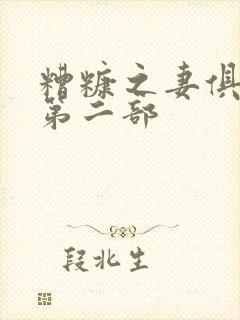 糟糠之妻俱
第二部
段北生